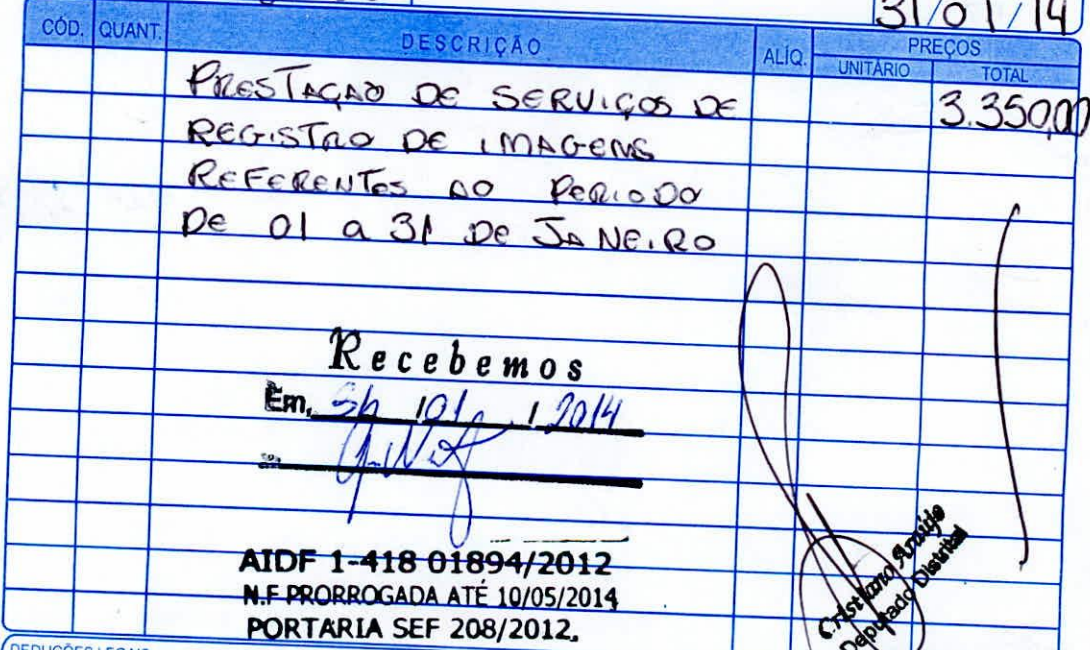 31/01/14
CÓD. QUANT. DESCRIÇÃO ALÍQ. PREÇOS
UNITÁRIO TOTAL
PRESTAÇAO DE SERVIÇOS DE 3.350,00
REGISTRO DE IMAGENS
REFERENTES AO PERIODO
DE 01 a 31 DE JANEIRO
Recebemos
Em, 31 / 01 / 2014
AIDF 1-418 01894/2012
N.F PRORROGADA ATÉ 10/05/2014
PORTARIA SEF 208/2012.
Cristiano Araújo
Deputado Distrital
DEDUÇÕES LEGAIS